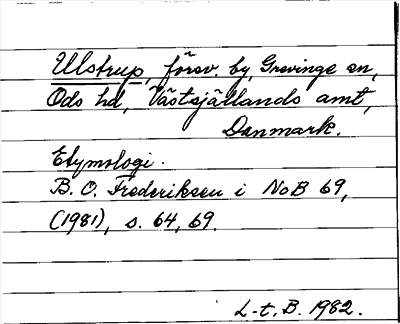 Ulstrup, försv. by, Grevinge sn,
Ods hd, Västsjällands amt,
Danmark.
Etymologi.
B. O. Frederiksen i NoB 69,
(1981), s. 64, 69.
L-t, B. 1982.